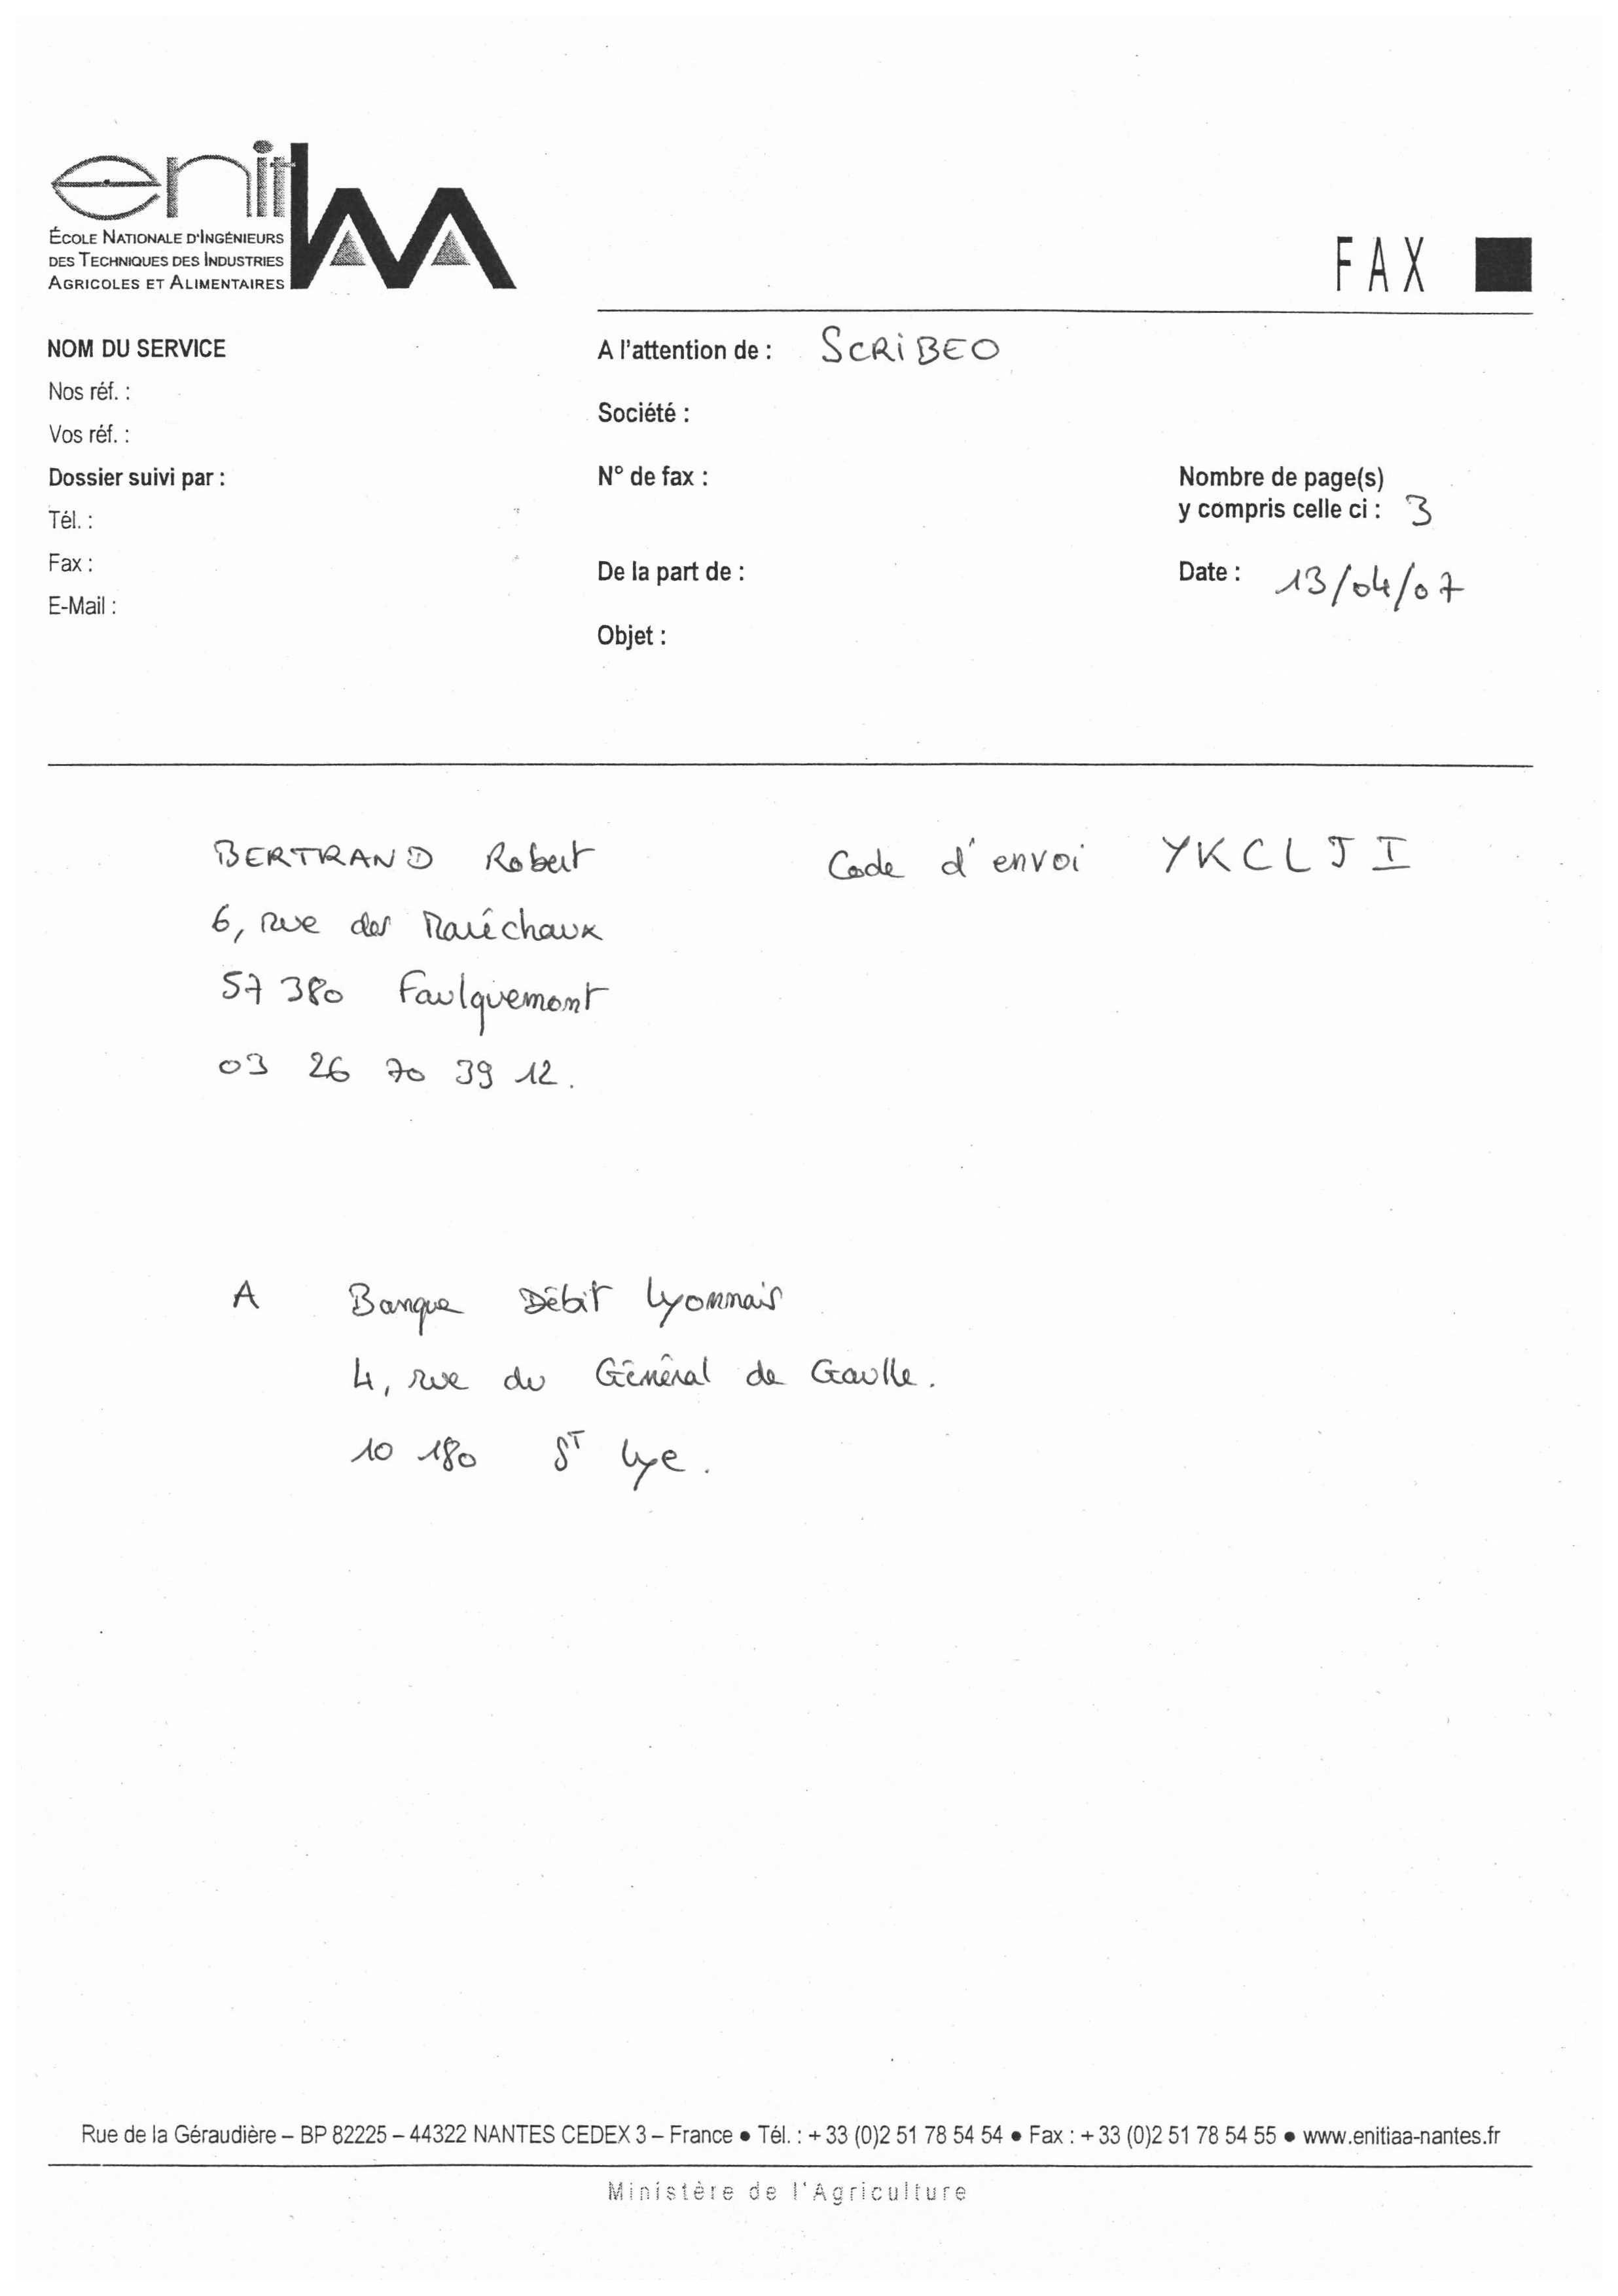 enitIAA
ÉCOLE NATIONALE D'INGÉNIEURS
DES TECHNIQUES DES INDUSTRIES
AGRICOLES ET ALIMENTAIRES
FAX
NOM DU SERVICE
Nos réf. :
Vos réf. :
Dossier suivi par :
Tél. :
Fax :
E-Mail :
A l'attention de : SCRIBEO
Société :
N° de fax :
De la part de :
Objet :
Nombre de page(s)
y compris celle ci : 3
Date : 13/04/07
BERTRAND Robert
6, rue des Maréchaux
57 380 Faulquemont
03 26 70 39 12.
Code d'envoi YKCLJI
A Banque Débit Lyonnais
4, rue du Général de Gaulle.
10 180 ST Lye.
Rue de la Géraudière – BP 82225 – 44322 NANTES CEDEX 3 – France ● Tél. : + 33 (0)2 51 78 54 54 ● Fax : + 33 (0)2 51 78 54 55 ● www.enitiaa-nantes.fr
Ministère de l'Agriculture